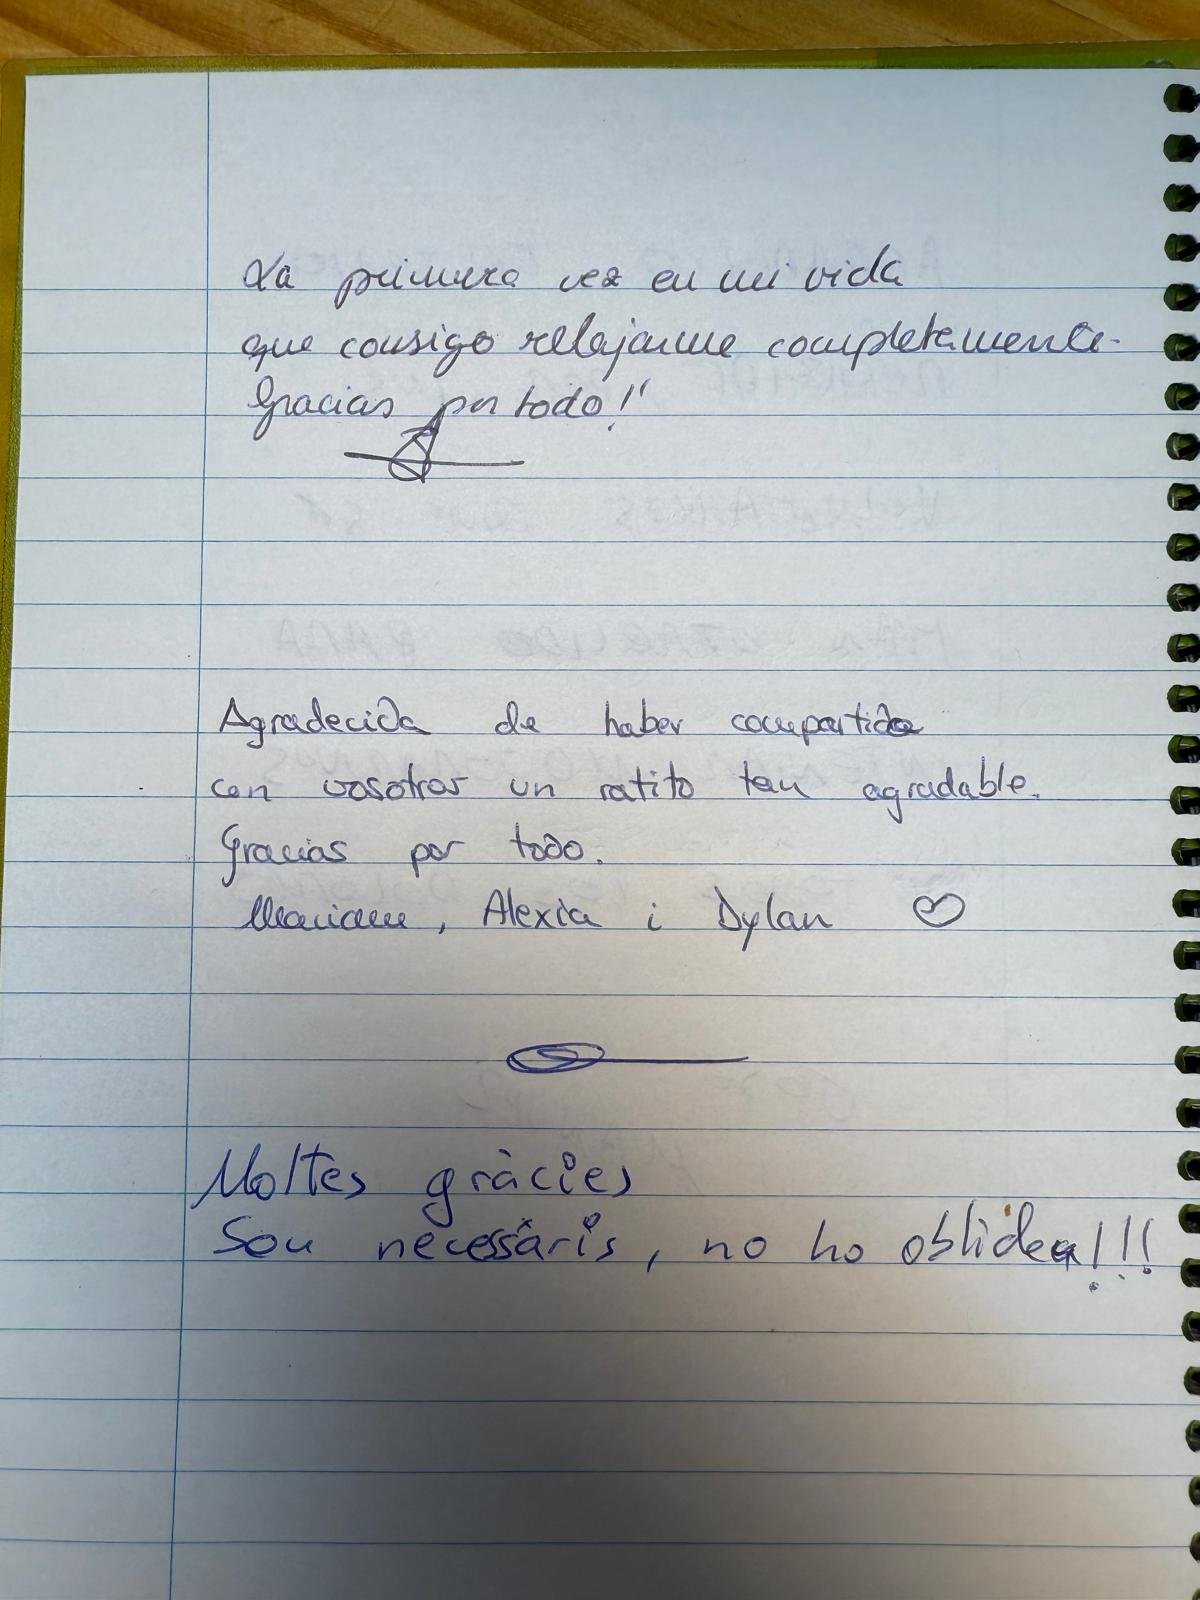 La primera vez en mi vida
que consigo relajarme completamente.
Gracias por todo!!
Agradecida de haber compartido
con vosotros un ratito tan agradable.
Gracias por todo.
, Alexia i Dylan ♡
Moltes gràcies
Sou necessàris, no ho oblideu!!!